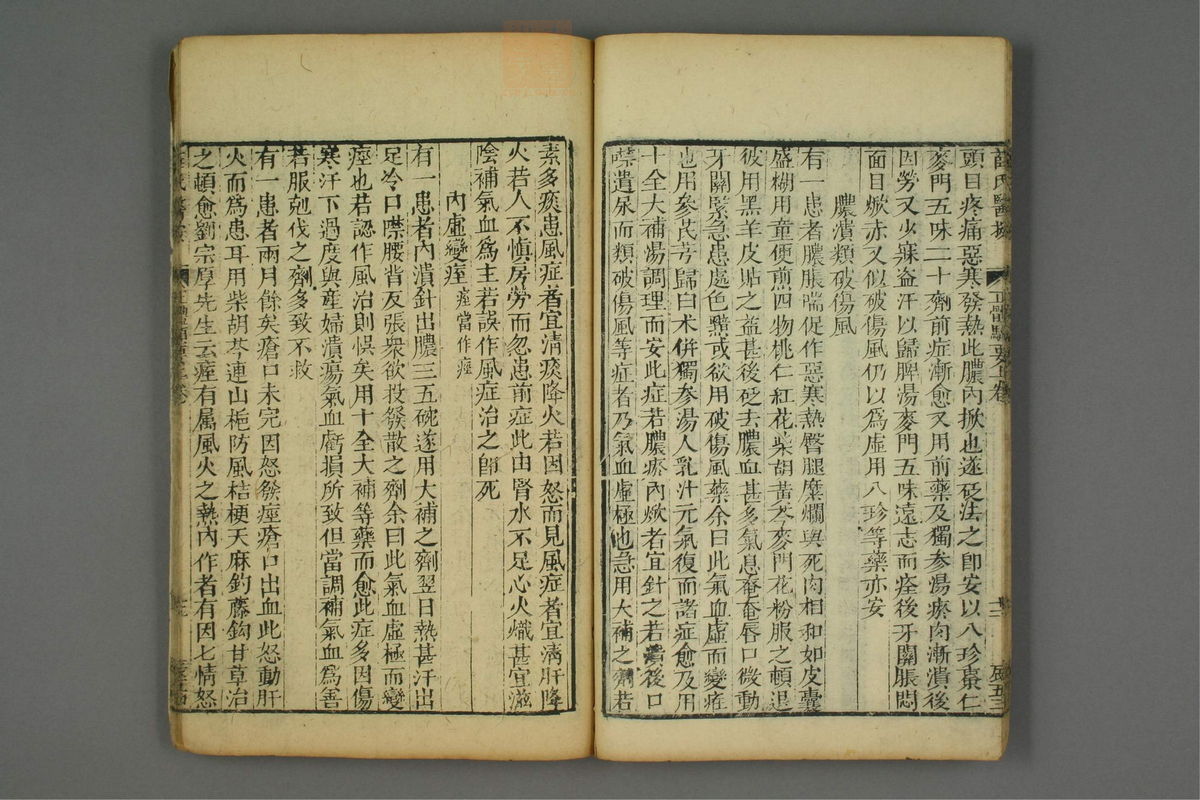 頭目疼痛惡寒發熱此膿內掀也遂砭法之卽安以八珍棗仁
麥門五味二十劑前症漸愈又用前藥及獨參湯瘀肉漸潰後
因勞又少寐盜汗以歸脾湯麥門五味遠志而痊後牙關脹悶
面目焮赤又似破傷風仍以爲虛用八珍等藥亦安
膿潰類破傷風
有一患者膿脹喘促作惡寒熱臀腿糜爛與死肉相和如皮囊
盛糊用童便煎四物桃仁紅花柴胡黃芩麥門花粉服之頓退
彼用黑羊皮貼之益甚後砭去膿血甚多氣息奄奄唇口微動
牙關緊急患處色黯或欲用破傷風藥余曰此氣血虛而變症
也用參芪芎歸白术併獨參湯人乳汁元氣復而諸症愈乃用
十全大補湯調理而安此症若膿瘀內焮者宜針之若潰後口
禁遺尿而類破傷風等症者乃氣血虛極也急用大補之劑若
素多痰患風症者宜清痰降火若因怒而見風症者宜淸肝降
火若人不慎房勞而忽患前症此由腎水不足心火熾甚宜滋
陰補氣血爲主若誤作風症治之卽死
內虛變痓 痙當作痓
有一患者內潰針出膿三五碗遂用大補之劑翌日熱甚汗出
足冷口噤腰背反張衆欲投發散之劑余曰此氣血虛極而變
痙也若認作風治則悞矣用十全大補等藥而愈此症多因傷
寒汗下過度與產婦潰瘍氣血虧損所致但當調補氣血爲善
若服剋伐之劑多致不救
有一患者兩月餘矣瘡口未完因怒發痙瘡口出血此怒動肝
火而爲患耳用柴胡芩連山梔防風桔梗天麻釣藤鈎甘草治
之頓愈劉宗厚先生云痓有属風火之熱內作者有因七情怒